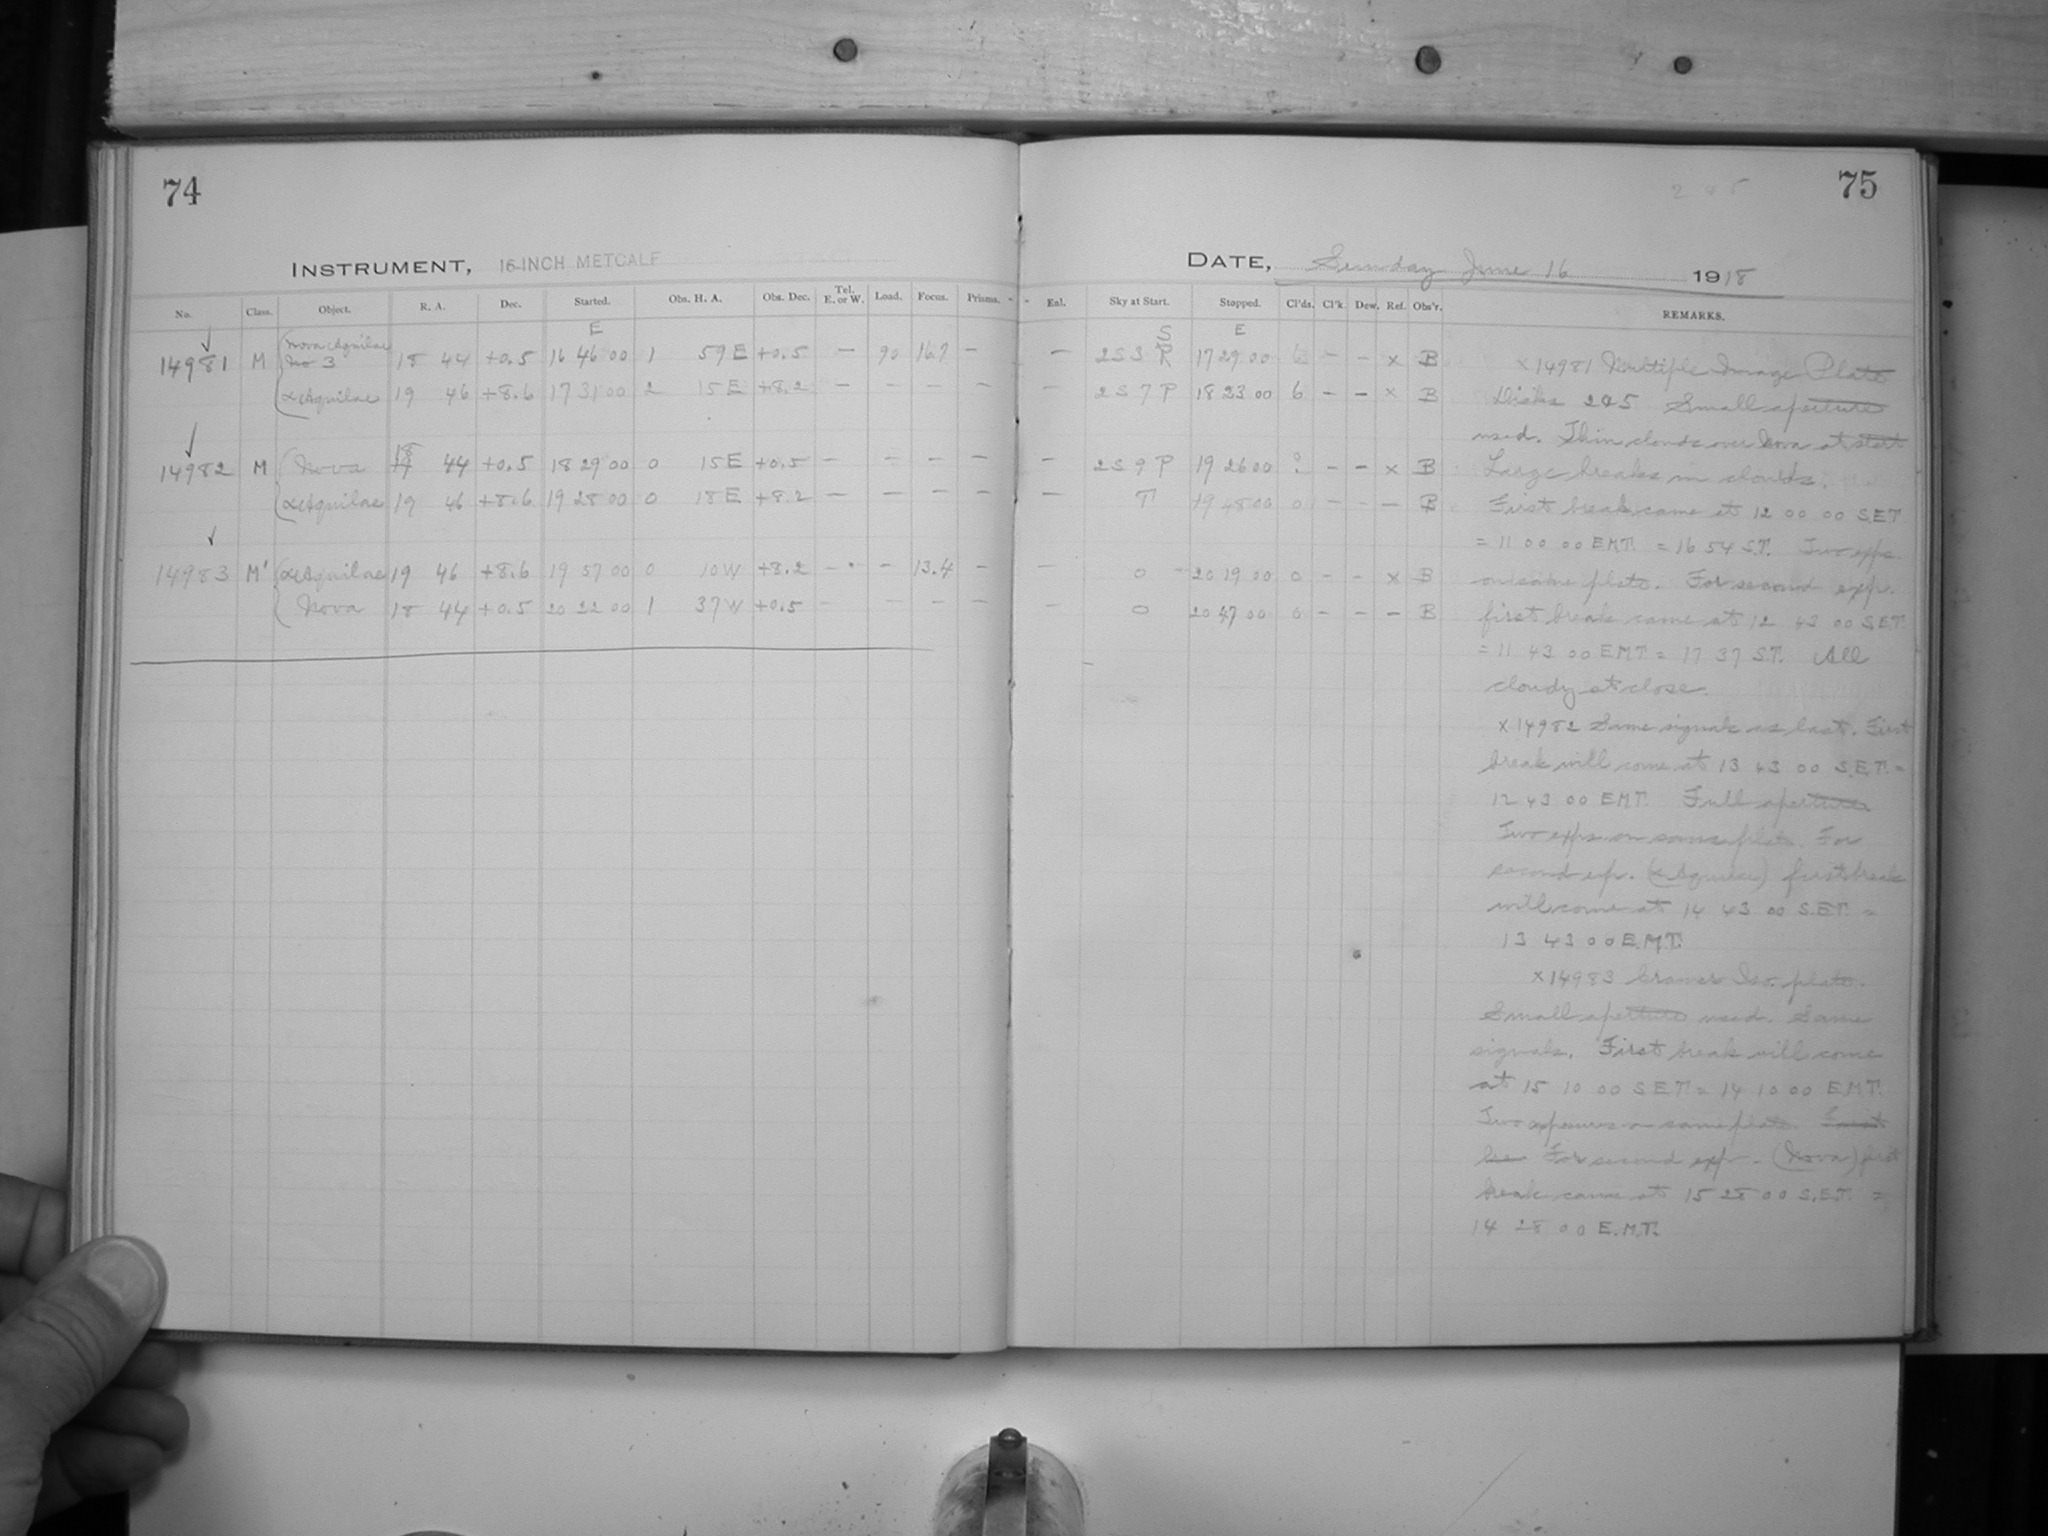 74
75
245
INSTRUMENT, 16-INCH METCALF
DATE, Sunday June 16 1918
No. Class. Object. R. A. Dec. Started. Obs. H. A. Obs. Dec. Tel. E. or W. Load. Focus. Prisms.
Enl. Sky at Start. Stopped. Cl'ds. Cl'k. Dew. Ref. Obs'r. REMARKS.
E
S E
14981 M Nova Aquilae No 3 18 44 +0.5 16 46 00 1 59 E +0.5 — 90 16.7 —
— 2 S 3 R 17 29 00 6 — — x B
α Aquilae 19 46 +8.6 17 31 00 2 15 E +8.2 — — — —
— 2 S 7 P 18 23 00 6 — — x B
14982 M Nova 18 44 +0.5 18 29 00 0 15 E +0.5 — — — —
— 2 S 9 P 19 26 00 ? — — x B
α Aquilae 19 46 +8.6 19 28 00 0 18 E +8.2 — — — —
— T 19 48 00 0 — — — B
14983 M' α Aquilae 19 46 +8.6 19 57 00 0 10 W +8.2 — — 13.4 —
— 0 20 19 00 0 — — x B
Nova 18 44 +0.5 20 22 00 1 37 W +0.5 — — — —
— 0 20 47 00 0 — — — B
x 14981 Multiple Image Plate
Disks 245 Small aperture
used. Thin clouds over Nova at start
Large breaks in clouds.
First break came at 12 00 00 S.E.T.
= 11 00 00 E.M.T. = 16 54 S.T. Two exps.
on same plate. For second exp.
first break came at 12 43 00 S.E.T.
= 11 43 00 E.M.T. = 17 37 S.T. All
cloudy at close.
x 14982 Same signals as last. First
break will come at 13 43 00 S.E.T. =
12 43 00 E.M.T. Full aperture
Two exps on same plate. For
second exp. (α Aquilae) first break
will come at 14 43 00 S.E.T. =
13 43 00 E.M.T.
x 14983 Cramer Iso. plate.
Small aperture used. Same
signals. First break will come
at 15 10 00 S.E.T. = 14 10 00 E.M.T.
Two exposures on same plate. First
bre For second exp. (Nova) first
break came at 15 28 00 S.E.T. =
14 28 00 E.M.T.